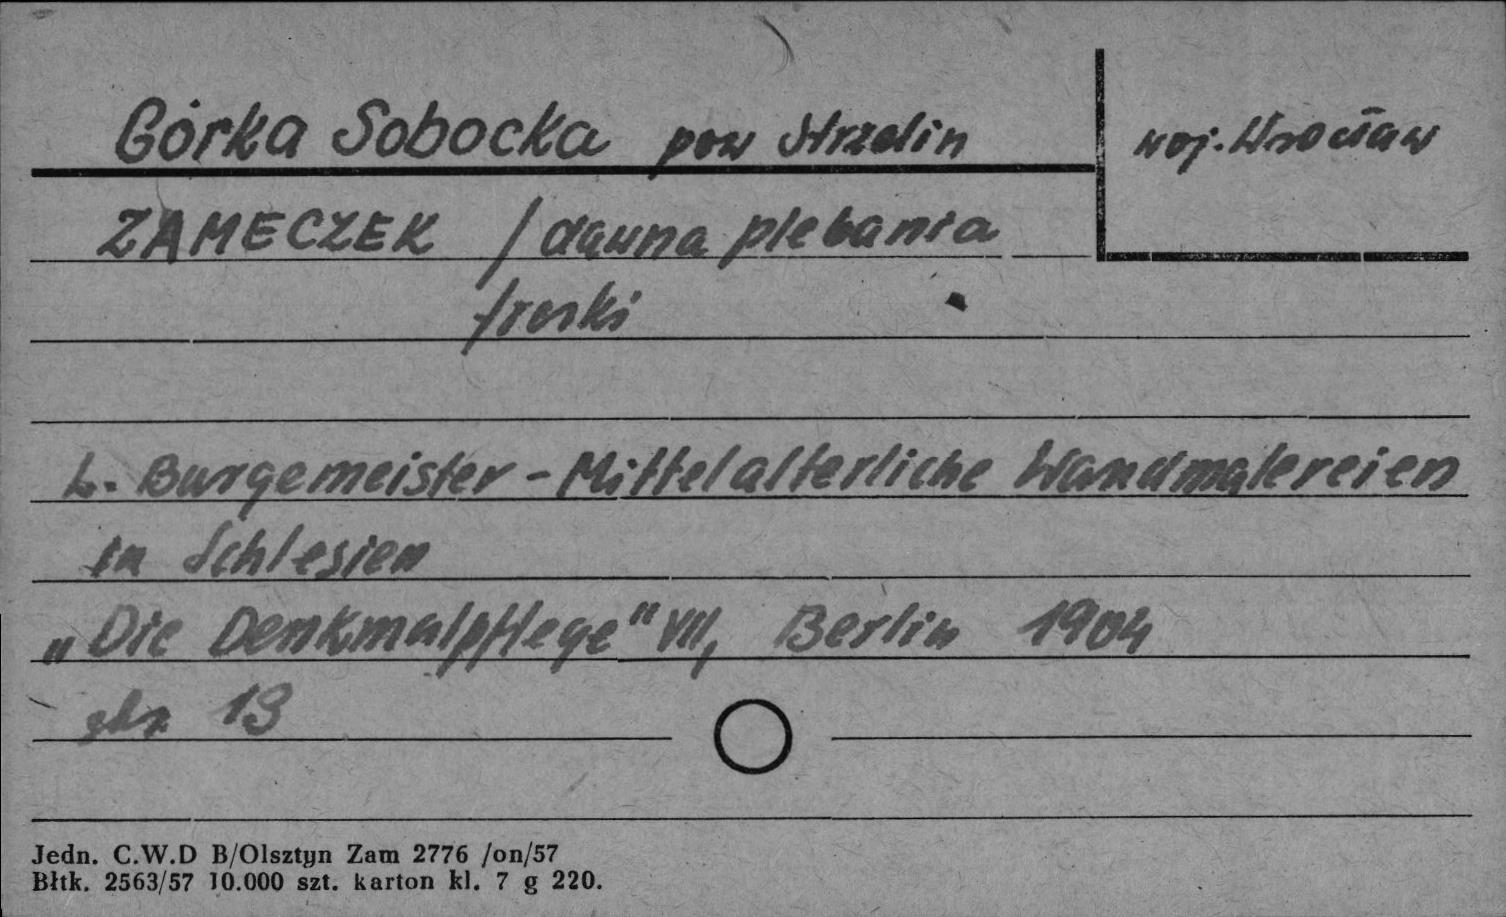 Górka Sobocka pow Strzelin
woj. Wrocław
ZAMECZEK / dawna plebania
freski
L. Burgemeister - Mittelalterliche Wandmalereien
in Schlesien
„Die Denkmalpflege" VII, Berlin 1904
str 13
Jedn. C.W.D B/Olsztyn Zam 2776 /on/57
Błtk. 2563/57 10.000 szt. karton kl. 7 g 220.